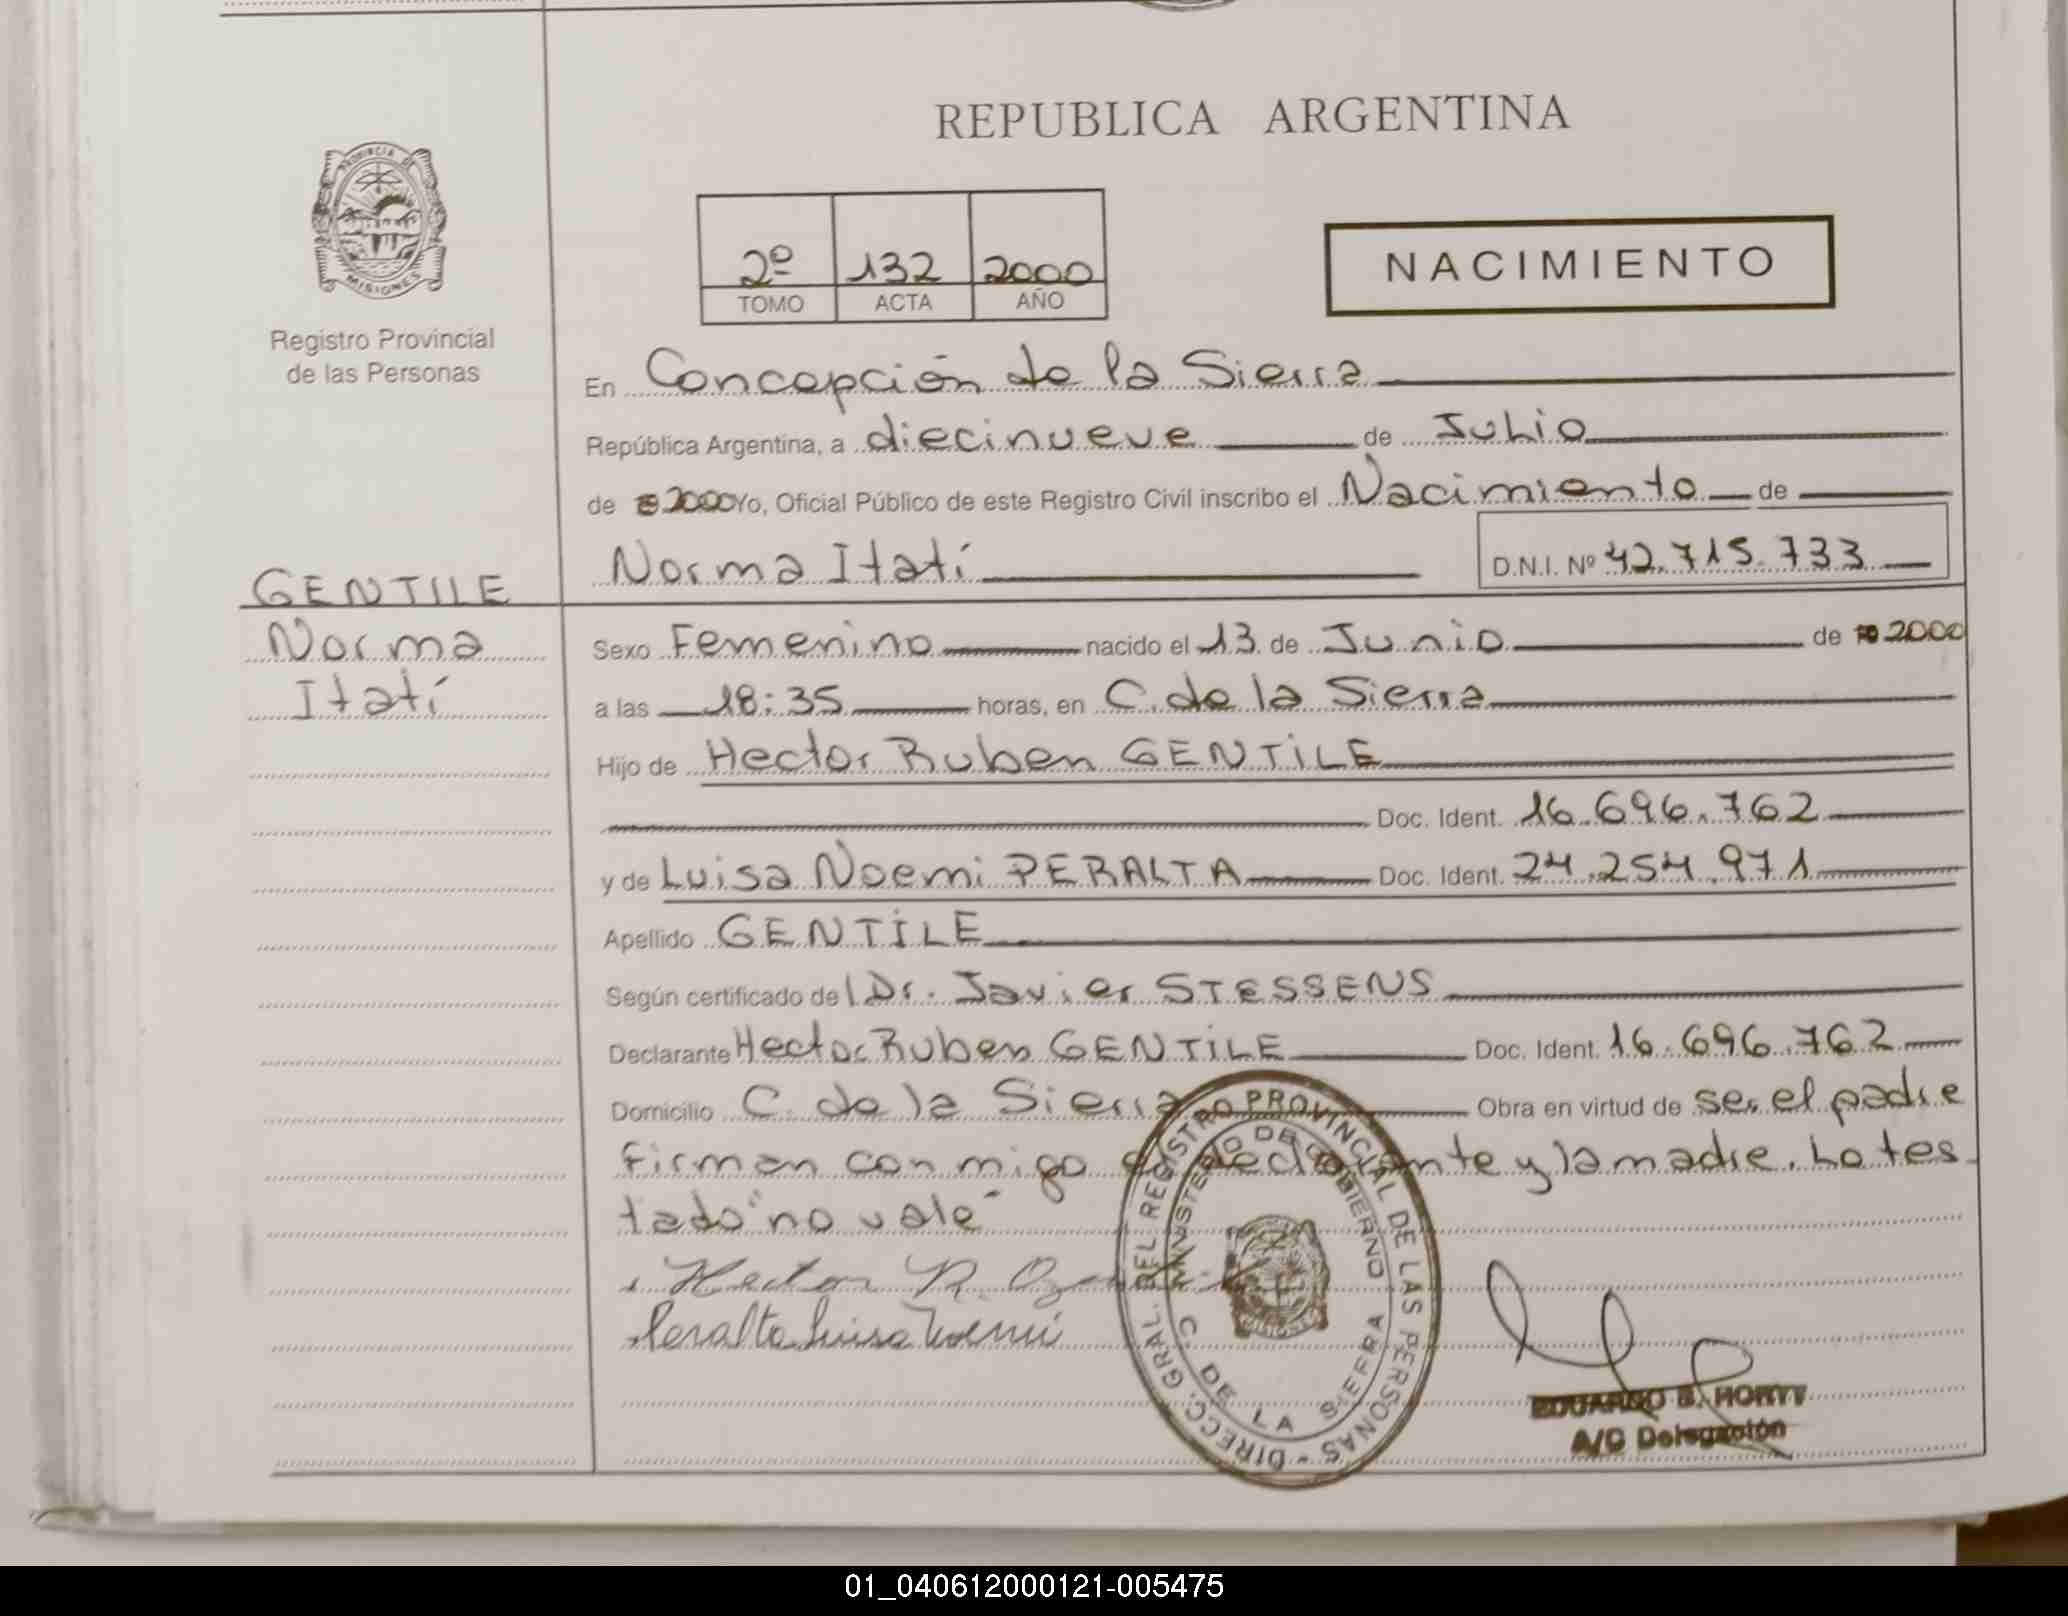 REPUBLICA ARGENTINA
PROVINCIA DE MISIONES
Registro Provincial
de las Personas
2º 132 2000
TOMO ACTA AÑO
NACIMIENTO
En Concepción de la Sierra
República Argentina, a diecinueve de Julio
de 2000 Yo, Oficial Público de este Registro Civil inscribo el Nacimiento de
Norma Itatí D.N.I. Nº 42.715.733
GENTILE
Norma
Itatí
Sexo Femenino nacido el 13 de Junio de 2000
a las 18:35 horas, en C. de la Sierra
Hijo de Hector Ruben GENTILE
Doc. Ident. 16.696.762
y de Luisa Noemi PERALTA Doc. Ident. 24.254.971
Apellido GENTILE
Según certificado del Dr. Javier STESSENS
Declarante Hector Ruben GENTILE Doc. Ident. 16.696.762
Domicilio C. de la Sierra Obra en virtud de ser el padre
Firman con migo el declarante y la madre. Lo tes
tado "no vale"
Hector R.
Peralta Luisa Noemi
DIRECC. GRAL. DEL REGISTRO PROVINCIAL DE LAS PERSONAS
MINISTERIO DE GOBIERNO
C. DE LA SIERRA
EDUARDO B.
A/C Delegación
01_040612000121-005475